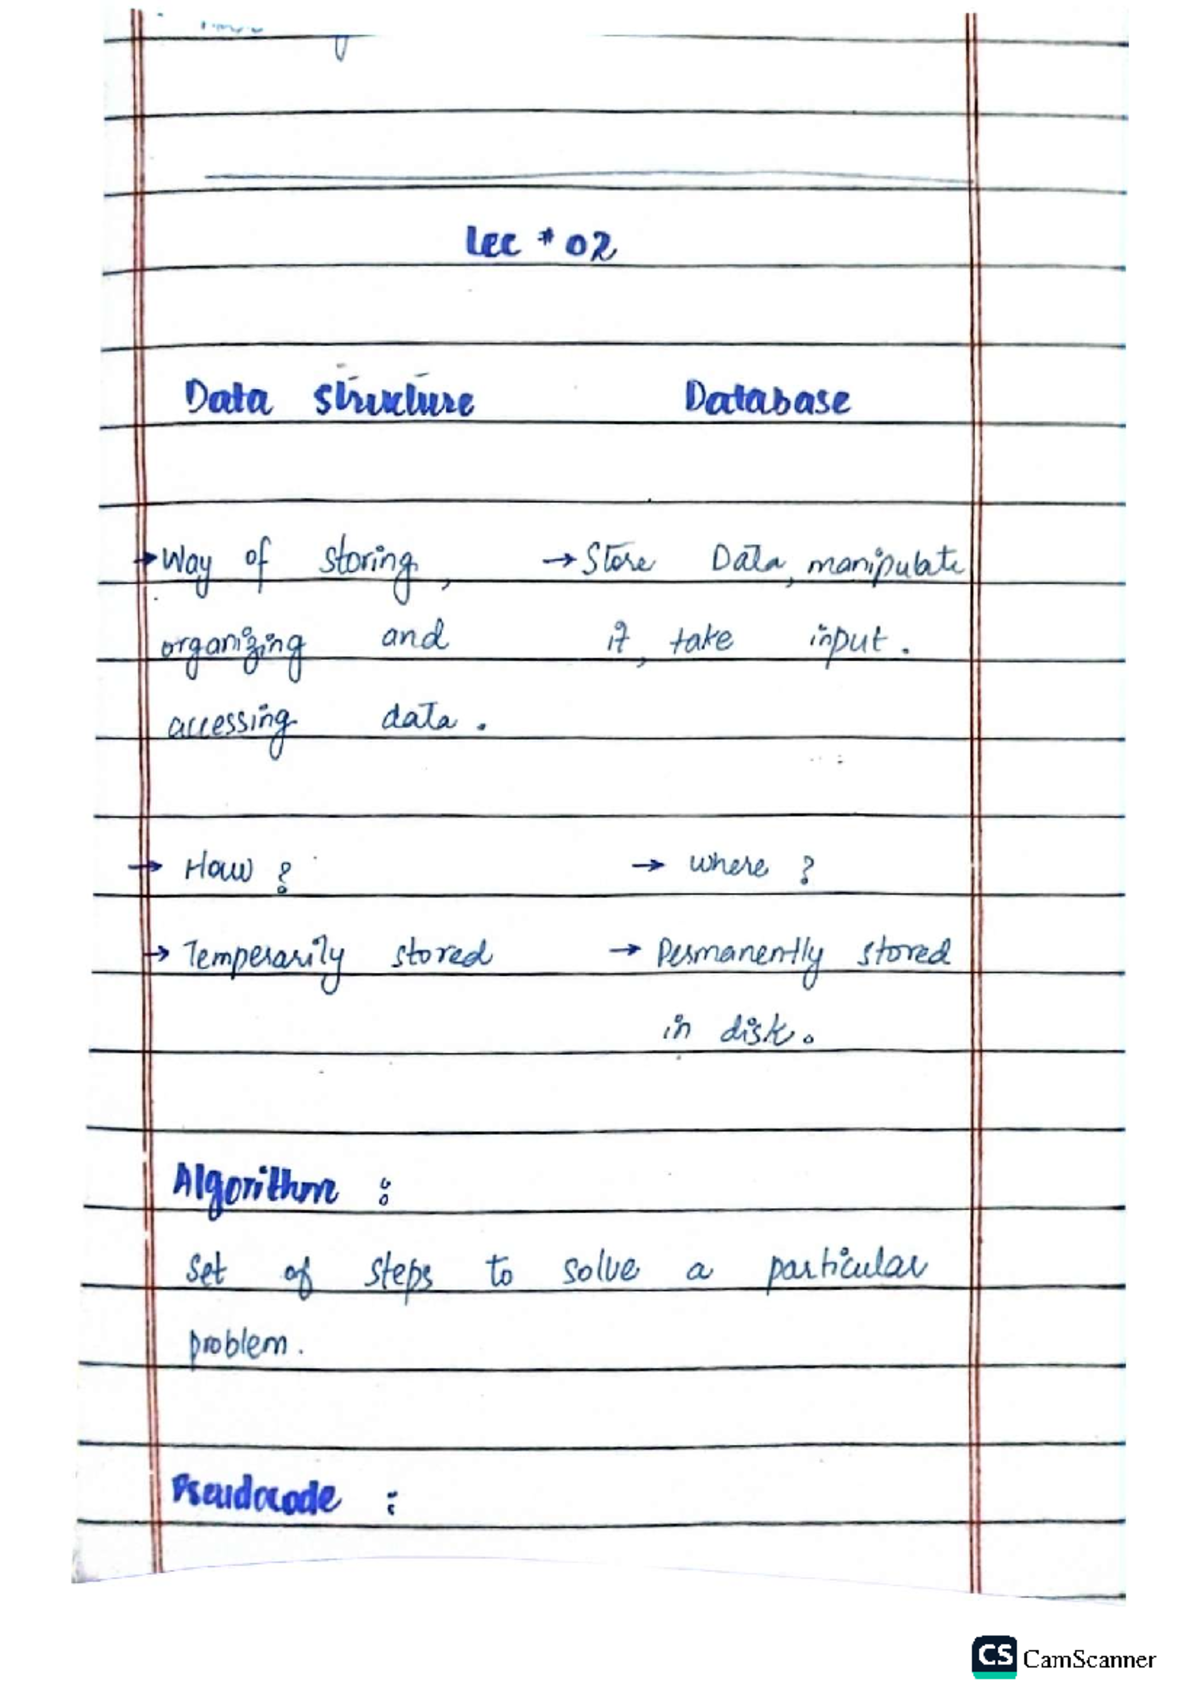 Lec # 02
Data structure Database
→ Way of storing, → Store Data, manipulate
organizing and it, take input.
accessing data.
→ How ? → where ?
→ Temperarily stored → Permanently stored
in disk.
Algorithm :
Set of steps to solve a particular
problem.
Pseudocode :
CS CamScanner